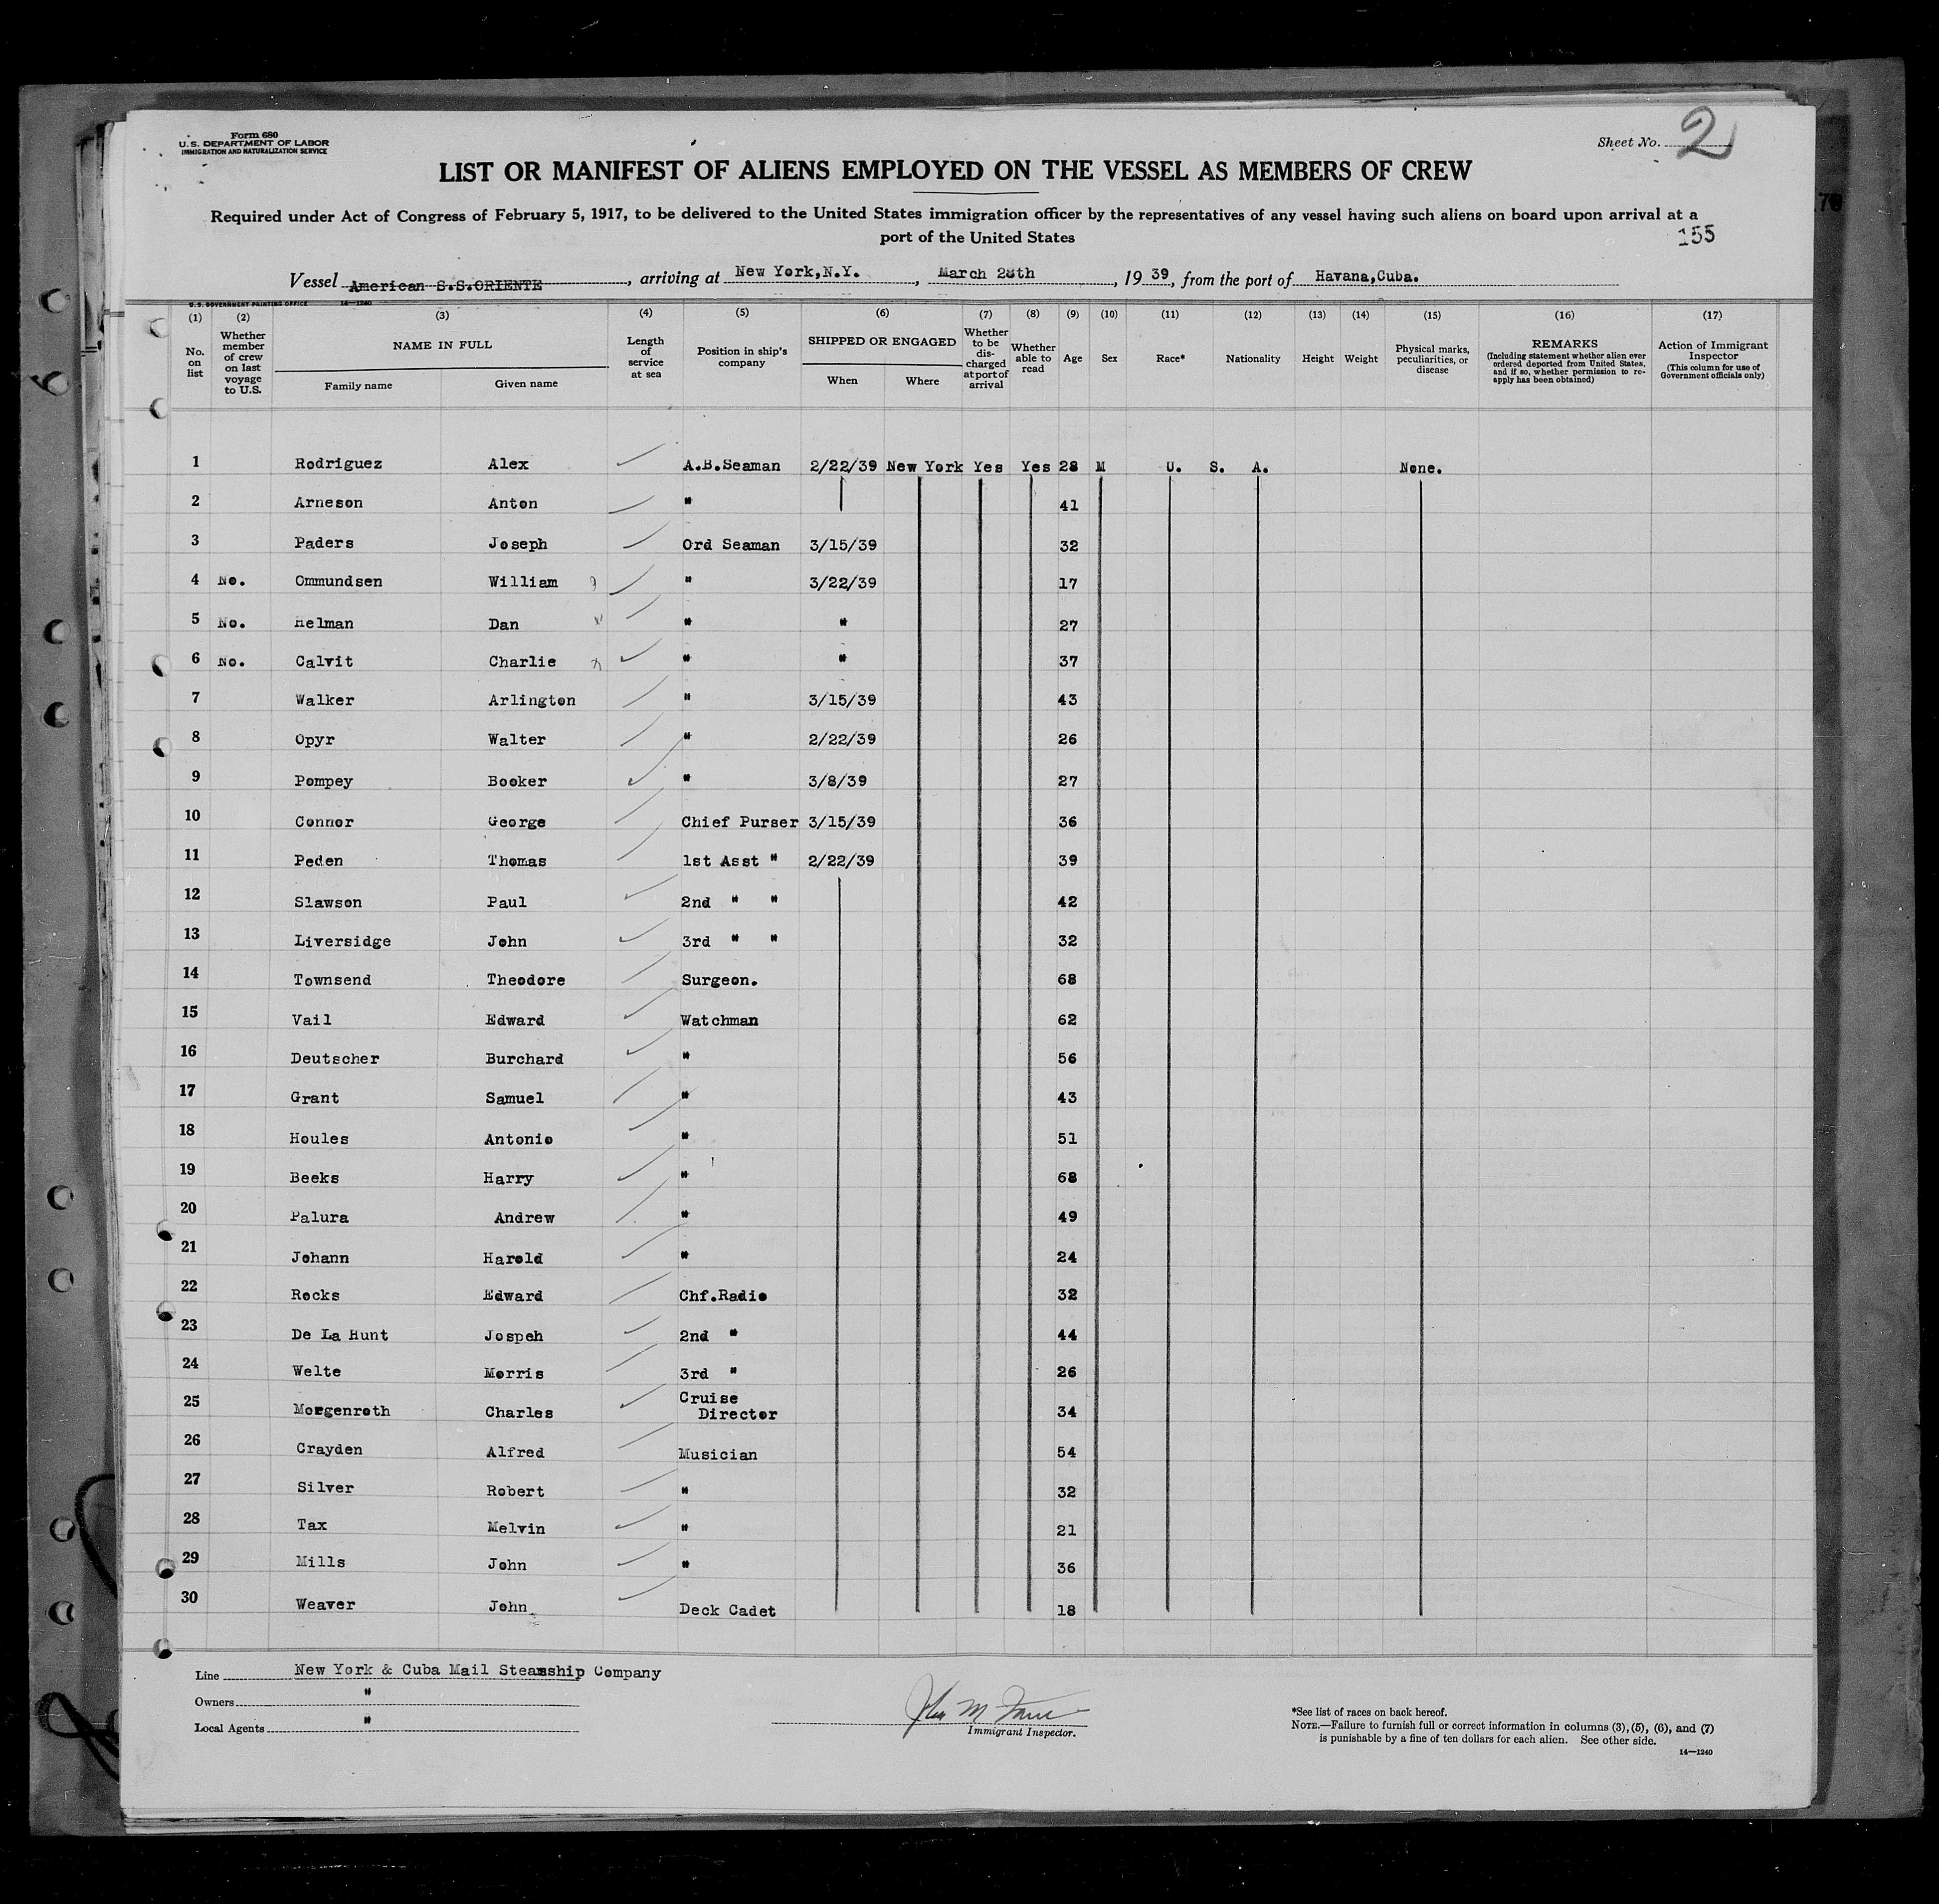 Form 680
U. S. DEPARTMENT OF LABOR
IMMIGRATION AND NATURALIZATION SERVICE
Sheet No. 2
LIST OR MANIFEST OF ALIENS EMPLOYED ON THE VESSEL AS MEMBERS OF CREW
Required under Act of Congress of February 5, 1917, to be delivered to the United States immigration officer by the representatives of any vessel having such aliens on board upon arrival at a
port of the United States
155
Vessel American S.S.ORIENTE, arriving at New York,N.Y., March 28th, 1939, from the port of Havana,Cuba.
U. S. GOVERNMENT PRINTING OFFICE 14—1240
(1) (2) (3) (4) (5) (6) (7) (8) (9) (10) (11) (12) (13) (14) (15) (16) (17)
No. on list
Whether member of crew on last voyage to U.S.
NAME IN FULL
Family name Given name
Length of service at sea
Position in ship's company
SHIPPED OR ENGAGED
When Where
Whether to be discharged at port of arrival
Whether able to read
Age
Sex
Race*
Nationality
Height
Weight
Physical marks, peculiarities, or disease
REMARKS
(Including statement whether alien ever ordered deported from United States, and if so, whether permission to reapply has been obtained)
Action of Immigrant Inspector
(This column for use of Government officials only)
1 Rodriguez Alex A.B.Seaman 2/22/39 New York Yes Yes 28 M U. S. A. None.
2 Arneson Anton " 41
3 Paders Joseph Ord Seaman 3/15/39 32
4 No. Ommundsen William " 3/22/39 17
5 No. Helman Dan " " 27
6 No. Calvit Charlie " " 37
7 Walker Arlington " 3/15/39 43
8 Opyr Walter " 2/22/39 26
9 Pompey Booker " 3/8/39 27
10 Connor George Chief Purser 3/15/39 36
11 Peden Thomas 1st Asst " 2/22/39 39
12 Slawson Paul 2nd " " 42
13 Liversidge John 3rd " " 32
14 Townsend Theodore Surgeon. 68
15 Vail Edward Watchman 62
16 Deutscher Burchard " 56
17 Grant Samuel " 43
18 Houles Antonio " 51
19 Beeks Harry " 68
20 Palura Andrew " 49
21 Johann Harold " 24
22 Rocks Edward Chf.Radio 32
23 De La Hunt Jospeh 2nd " 44
24 Welte Morris 3rd " 26
25 Morgenroth Charles Cruise Director 34
26 Crayden Alfred Musician 54
27 Silver Robert " 32
28 Tax Melvin " 21
29 Mills John " 36
30 Weaver John Deck Cadet 18
Line New York & Cuba Mail Steamship Company
Owners "
Local Agents "
Immigrant Inspector.
*See list of races on back hereof.
NOTE.—Failure to furnish full or correct information in columns (3), (5), (6), and (7)
is punishable by a fine of ten dollars for each alien. See other side.
14—1240